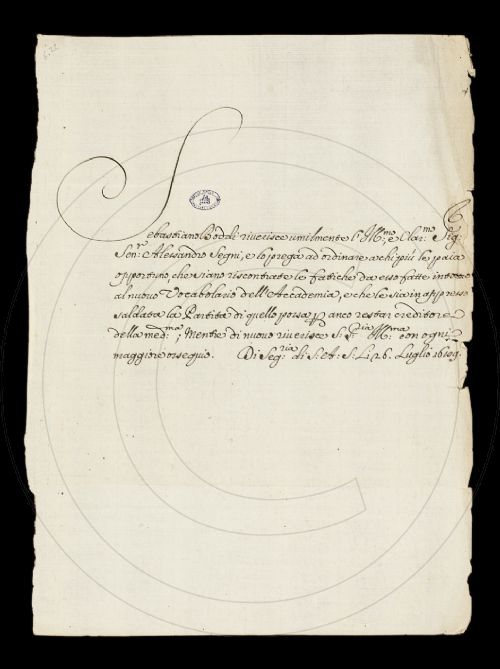 Sebastiano Boddi riverisce umilmente l'Ill.mo, e Clar.mo Sig.
Sen.r Alessandro Segni, e lo prega ad ordinare a chi più le paia
opportuno, che siano riscontrate le fatiche da esso fatte intorno
al nuovo Vocabolario dell'Accademia, e che le sia in appresso
saldata la Partita di quello possa p anco restar creditore
della med.ma; Mentre di nuovo riverisce S. S.ria Ill.ma con ogni
maggiore ossequio. Di Seg.ria di S: A: S: Li 26. Luglio